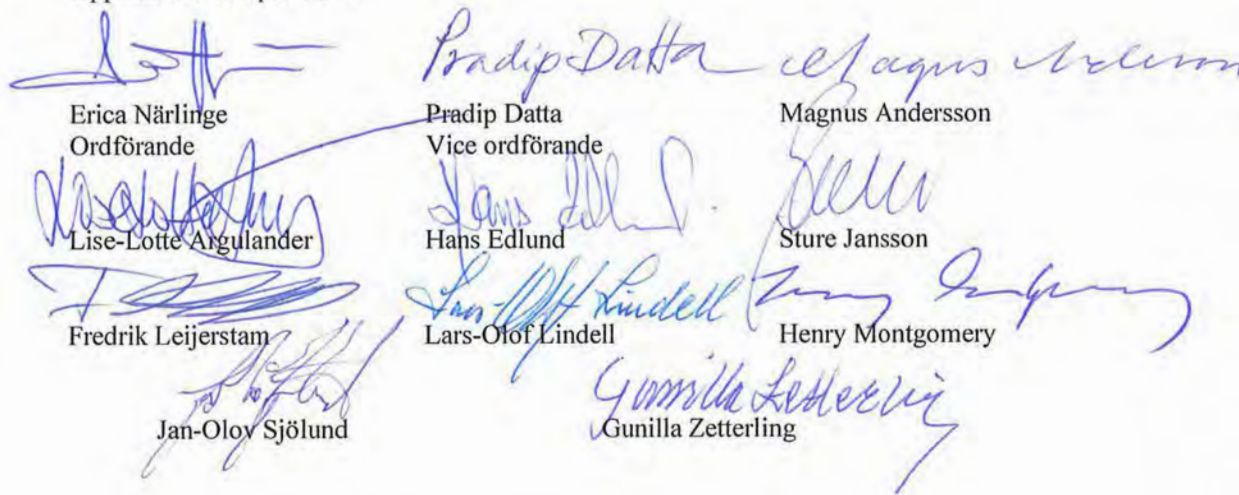 Pradip Datta Magnus Andersson
Erica Närlinge Pradip Datta Magnus Andersson
Ordförande Vice ordförande
Hans Edlund
Lise-Lotte Argulander Hans Edlund Sture Jansson
Lars-Olof Lindell
Fredrik Leijerstam Lars-Olof Lindell Henry Montgomery
Gunilla Zetterling
Jan-Olov Sjölund Gunilla Zetterling